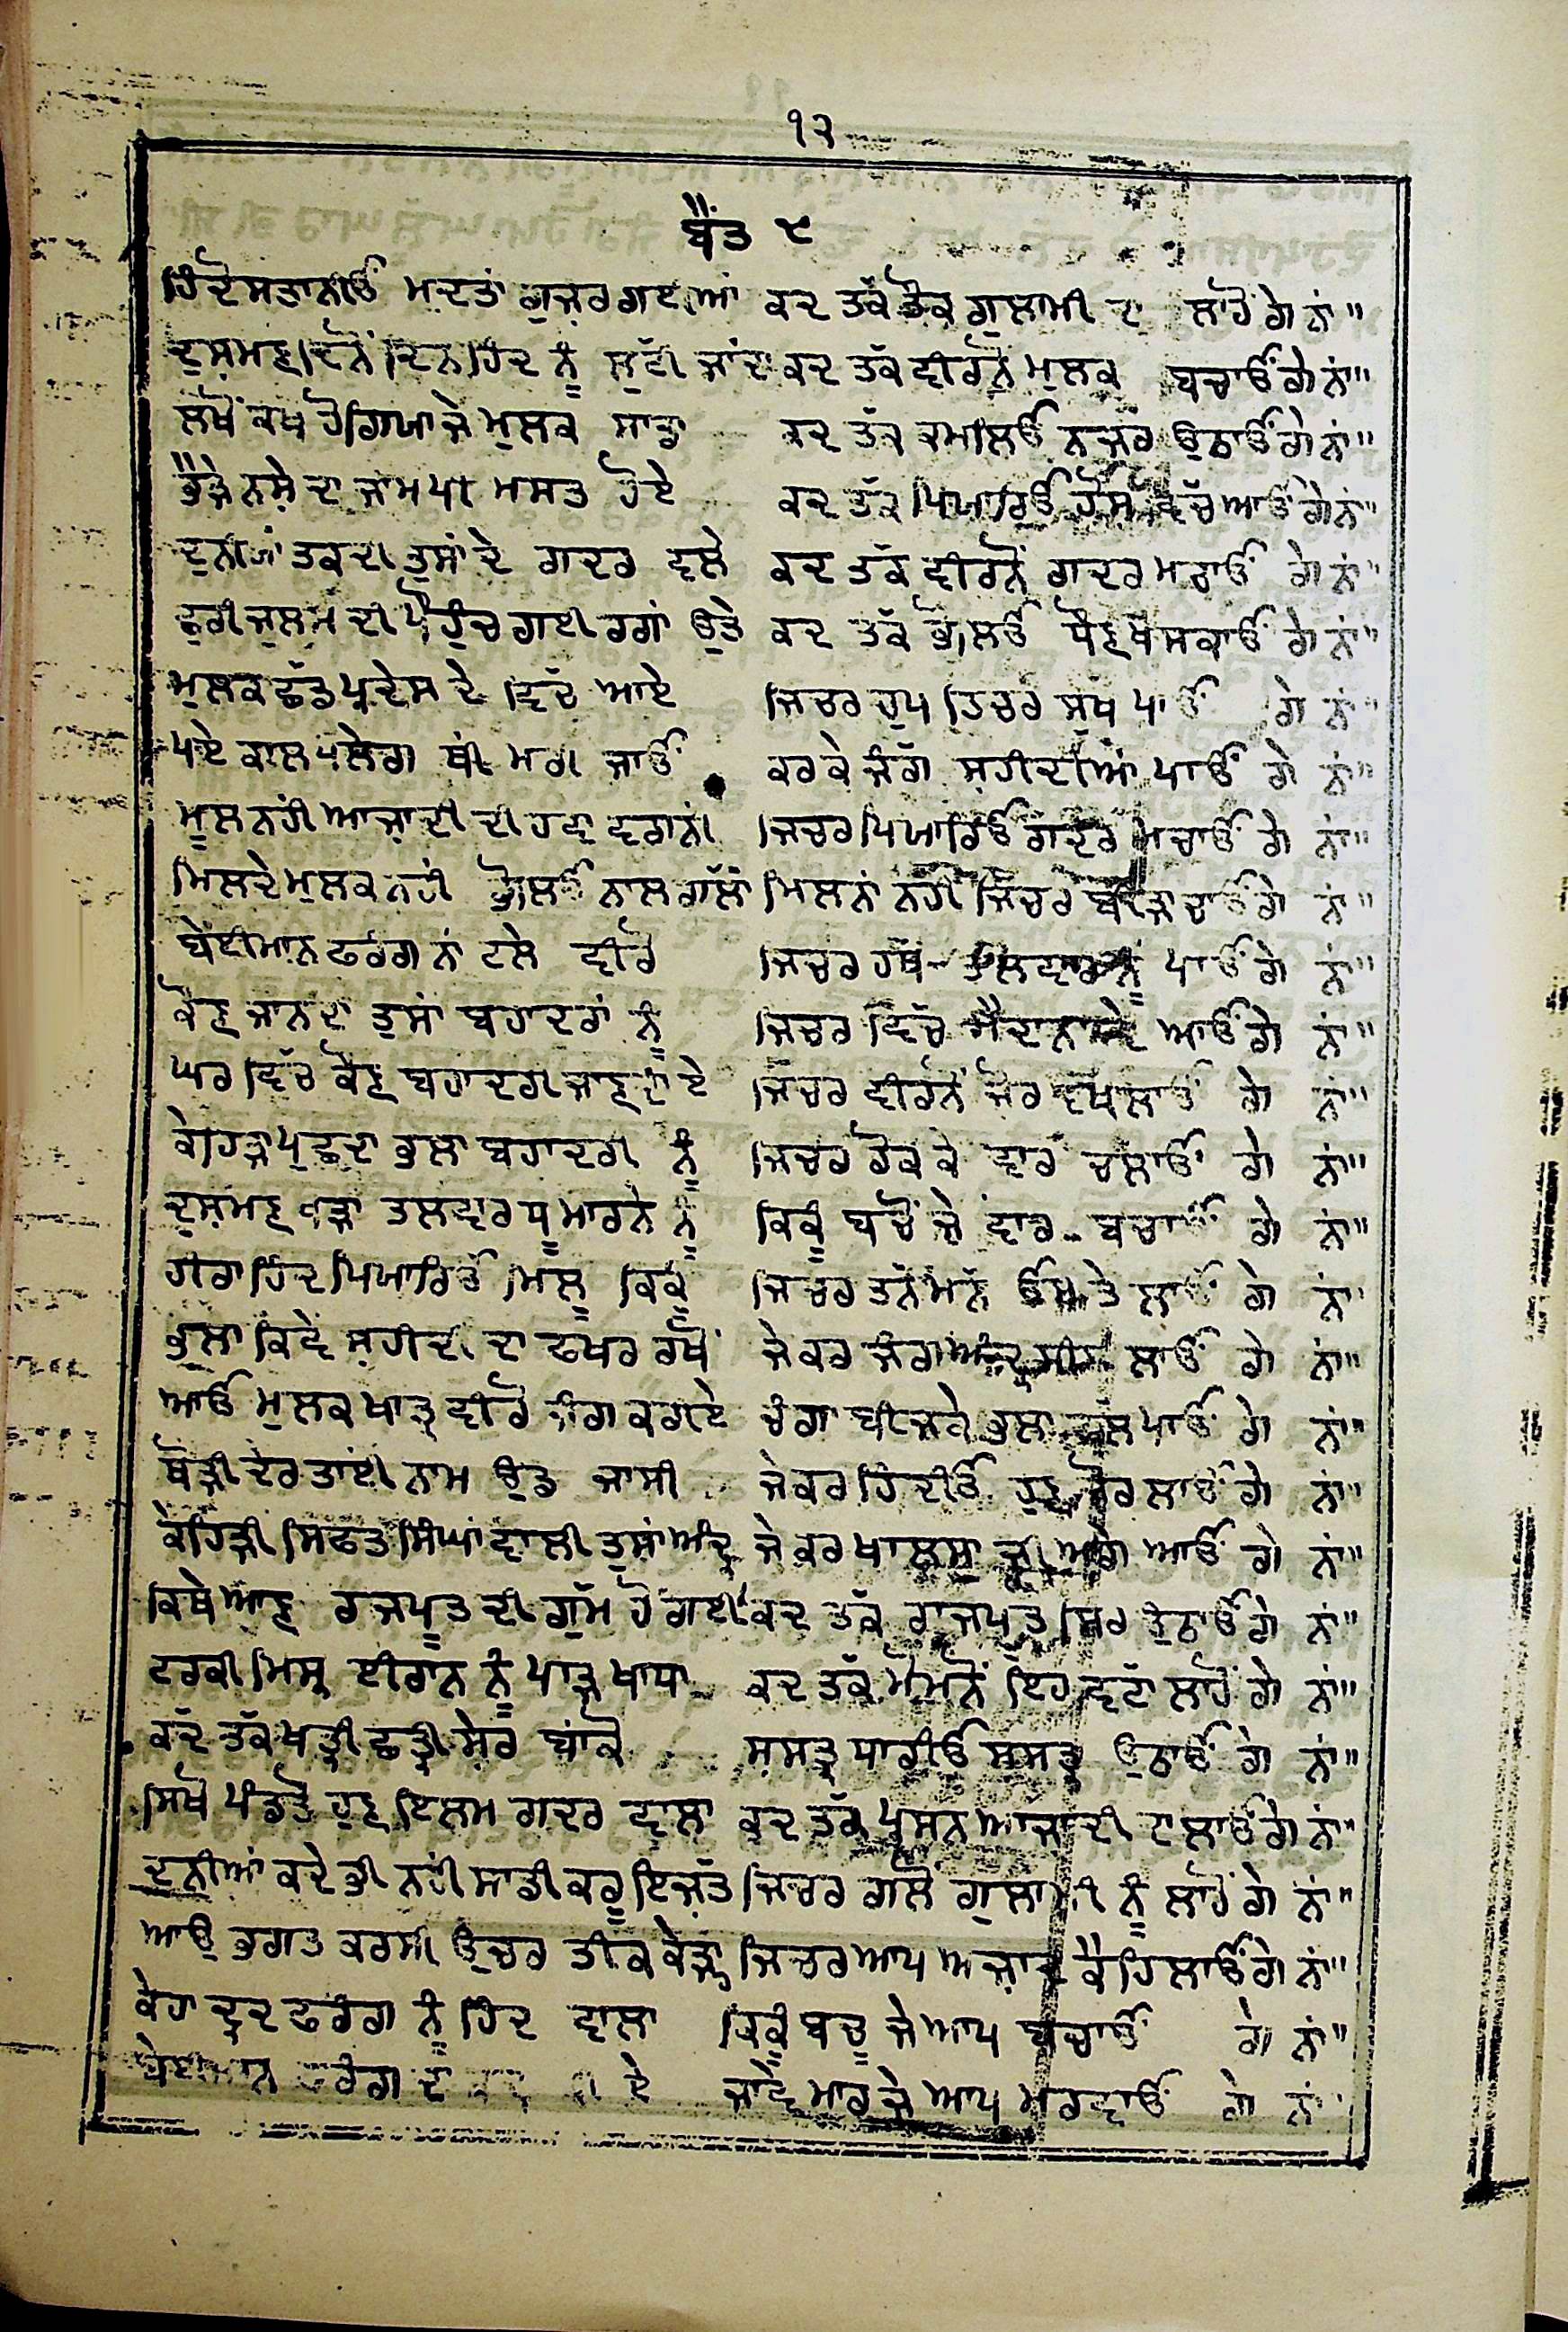 ੧੨
ਬੈਂਤ ੯
ਹਿੰਦੋਸਤਾਨੀਓ ਮਦਤਾਂ ਗੁਜ਼ਰ ਗਈਆਂ ਕਦ ਤੱਕ ਤੌਕ ਗੁਲਾਮੀ ਦਾ ਲਾਹੋਂ ਗੇ ਨਾਂ"
ਦੁਸ਼ਮਣ ਦਿਨੋਂ ਦਿਨ ਹਿੰਦ ਨੂੰ ਲੁਟੀ ਜਾਂਦਾ ਕਦ ਤੱਕ ਵੀਰਨੋ ਮੁਲਕ ਬਚਾਓਂਗੇ ਨਾਂ"
ਲਖੋਂ ਕਖ ਹੋਗਿਆ ਜੇ ਮੁਲਕ ਸਾਡਾ ਕਦ ਤੱਕ ਕਮਲਿਓ ਨਜ਼ਰ ਉਠਾਓਂਗੇ ਨਾਂ"
ਭੈੜੇ ਨਸ਼ੇ ਦਾ ਜਾਮ ਪੀ ਮਸਤ ਹੋਏ ਕਦ ਤੱਕ ਪਿਆਰਿਓ ਹੋਸ਼ ਵਿੱਚ ਆਓਂਗੇ ਨਾਂ"
ਦੁਨੀਆਂ ਤਕਦੀ ਤੁਸਾਂ ਦੇ ਗਦਰ ਵਲੇ ਕਦ ਤੱਕ ਵੀਰਨੋਂ ਗਦਰ ਮਚਾਓਂ ਗੇ ਨਾਂ"
ਛੁਰੀ ਜ਼ੁਲਮ ਦੀ ਪੌਹੁੰਚ ਗਈ ਰਗਾਂ ਉਤੇ ਕਦ ਤੱਕ ਭੋਲਿਓ ਧੌਣ ਖਸਕਾਓਂ ਗੇ ਨਾਂ"
ਮੁਲਕ ਛੱਡ ਪ੍ਰਦੇਸ ਦੇ ਵਿੱਚ ਆਏ ਜਿਚਰ ਚੁਪ ਤਿਚਰ ਸੁਖ ਪਾਓਂ ਗੇ ਨਾਂ"
ਪਏ ਕਾਲ ਪਲੇਗ ਥੀਂ ਮਰੀ ਜਾਓਂ ਕਰਕੇ ਜੰਗ ਸ਼ਹੀਦੀਆਂ ਪਾਓਂ ਗੇ ਨਾਂ"
ਮੂਲ ਨਹੀਂ ਆਜ਼ਾਦੀ ਦੀ ਹਵਾ ਵਗਨੀ ਜਿਚਰ ਪਿਆਰਿਓ ਗਦਰ ਮਚਾਓਂ ਗੇ ਨਾਂ"
ਮਿਲਦੇ ਮੁਲਕ ਨਹੀਂ ਭੋਲਿਓ ਨਾਲ ਗੱਲਾਂ ਮਿਲਨਾਂ ਨਹੀਂ ਜਿਚਰ ਬੀੜਾ ਚਾਓਂਗੇ ਨਾਂ"
ਬੇਈਮਾਨ ਫਰੰਗ ਨਾਂ ਟਲੇ ਵੀਰੋ ਜਿਚਰ ਹੱਥ ਤਲਵਾਰ ਨੂੰ ਪਾਓਂਗੇ ਨਾਂ"
ਕੌਣ ਜਾਨਦਾ ਤੁਸਾਂ ਬਹਾਦਰਾਂ ਨੂੰ ਜਿਚਰ ਵਿੱਚ ਮੈਦਾਨ ਦੇ ਆਓਂਗੇ ਨਾਂ"
ਘਰ ਵਿੱਚ ਕੌਣ ਬਹਾਦਰੀ ਜਾਣਦਾ ਏ ਜਿਚਰ ਵੀਰਨੋਂ ਜੋਰ ਦਖਲਾਓਂ ਗੇ ਨਾਂ"
ਕੇਹੜਾ ਪੁਛਦਾ ਭਲਾ ਬਹਾਦਰੀ ਨੂੰ ਜਿਚਰ ਰੋਕ ਕੇ ਵਾਰ ਚਲਾਓਂ ਗੇ ਨਾਂ"
ਦੁਸ਼ਮਣ ਤਲਵਾਰ ਧੂ ਮਾਰਨੇ ਨੂੰ ਕਿਕੂੰ ਬਚੋਂ ਜੇ ਵਾਰ ਬਚਾਓਂ ਗੇ ਨਾਂ"
ਹੀਰਾ ਹਿੰਦ ਪਿਆਰਿਓ ਮਿਲੂ ਕਿਕੂੰ ਜਿਚਰ ਤਨ ਮਨ ਓਸ ਤੇ ਲਾਓਂ ਗੇ ਨਾਂ"
ਭਲਾ ਕਿਵੇਂ ਸ਼ਹੀਦੀ ਦਾ ਫਖਰ ਰੱਖੋਂ ਜੇਕਰ ਜੰਗ ਅੰਦ੍ਰ ਸੀਸ ਲਾਓਂ ਗੇ ਨਾਂ"
ਆਓ ਮੁਲਕ ਖਾਤ੍ਰ ਵੀਰੋ ਜੰਗ ਕਰੀਏ ਚੰਗਾ ਬੀਜ ਕੇ ਭਲਾ ਫਲ ਪਾਓਂ ਗੇ ਨਾਂ"
ਥੋੜੀ ਦੇਰ ਤਾਂਈ ਨਾਮ ਉਡ ਜਾਸੀ ਜੇਕਰ ਹਿੰਦੀਓ ਹੁਣ ਜੋਰ ਲਾਓਂਗੇ ਨਾਂ"
ਕੇਹੜੀ ਸਿਫਤ ਸਿੰਘਾਂ ਵਾਲੀ ਤੁਸਾਂ ਅੰਦ੍ਰ ਜੇਕਰ ਖਾਲਸਾ ਜੀ ਅਗੇ ਆਓਂ ਗੇ ਨਾਂ"
ਕਿਥੇ ਆਣ ਰਾਜਪੂਤ ਦੀ ਗੁੱਮ ਹੋ ਗਈ ਕਦ ਤੱਕ ਰਾਜਪੂਤ ਸਿਰ ਉਠਾਓਂਗੇ ਨਾਂ"
ਟਰਕੀ ਮਿਸ੍ਰ ਈਰਾਨ ਨੂੰ ਪਾੜ ਖਾਧਾ ਕਦ ਤੱਕ ਮੋਮਨੋਂ ਇਹ ਵੱਟਾ ਲਾਹੋਂ ਗੇ ਨਾਂ"
ਕਦ ਤੱਕ ਖਤ੍ਰੀ ਛਤ੍ਰੀ ਸ਼ੇਰ ਬਾਂਕੇ ਸ਼ਸਤ੍ਰ ਧਾਰੀਓ ਸ਼ਸਤ੍ਰ ਉਠਾਓਂ ਗੇ ਨਾਂ"
ਸਿਖੋ ਪੰਡਤੋ ਹੁਣ ਇਲਮ ਗਦਰ ਵਾਲਾ ਕਦ ਤੱਕ ਪ੍ਰਸ਼ਨ ਆਜ਼ਾਦੀ ਦਾ ਲਾਓਂਗੇ ਨਾਂ"
ਦੁਨੀਆਂ ਕਦੇ ਭੀ ਨਹੀਂ ਸਾਡੀ ਕਰੂ ਇਜ਼ਤ ਜਿਚਰ ਗਲੋਂ ਗੁਲਾਮੀ ਨੂੰ ਲਾਹੋਂਗੇ ਨਾਂ"
ਆਓ ਭਗਤ ਕਰਸੀ ਉਚਰ ਤੀਕ ਕੇੜਾ ਜਿਚਰ ਆਪ ਅਜ਼ਾਦ ਕੈਹਿਲਾਓਂਗੇ ਨਾਂ"
ਕੇਹਾ ਦ੍ਰਦ ਫਰੰਗ ਨੂੰ ਹਿੰਦ ਵਾਲਾ ਕਿਕੂੰ ਬਚੂ ਜੇ ਆਪ ਬਚਾਓਂ ਗੇ ਨਾਂ"
ਬੇਈਮਾਨ ਫਰੰਗ ਦਾ ਏ ਜਾਵੇ ਮਾਰ ਜੇ ਆਪ ਮਰਵਾਓਂ ਗੇ ਨਾਂ"